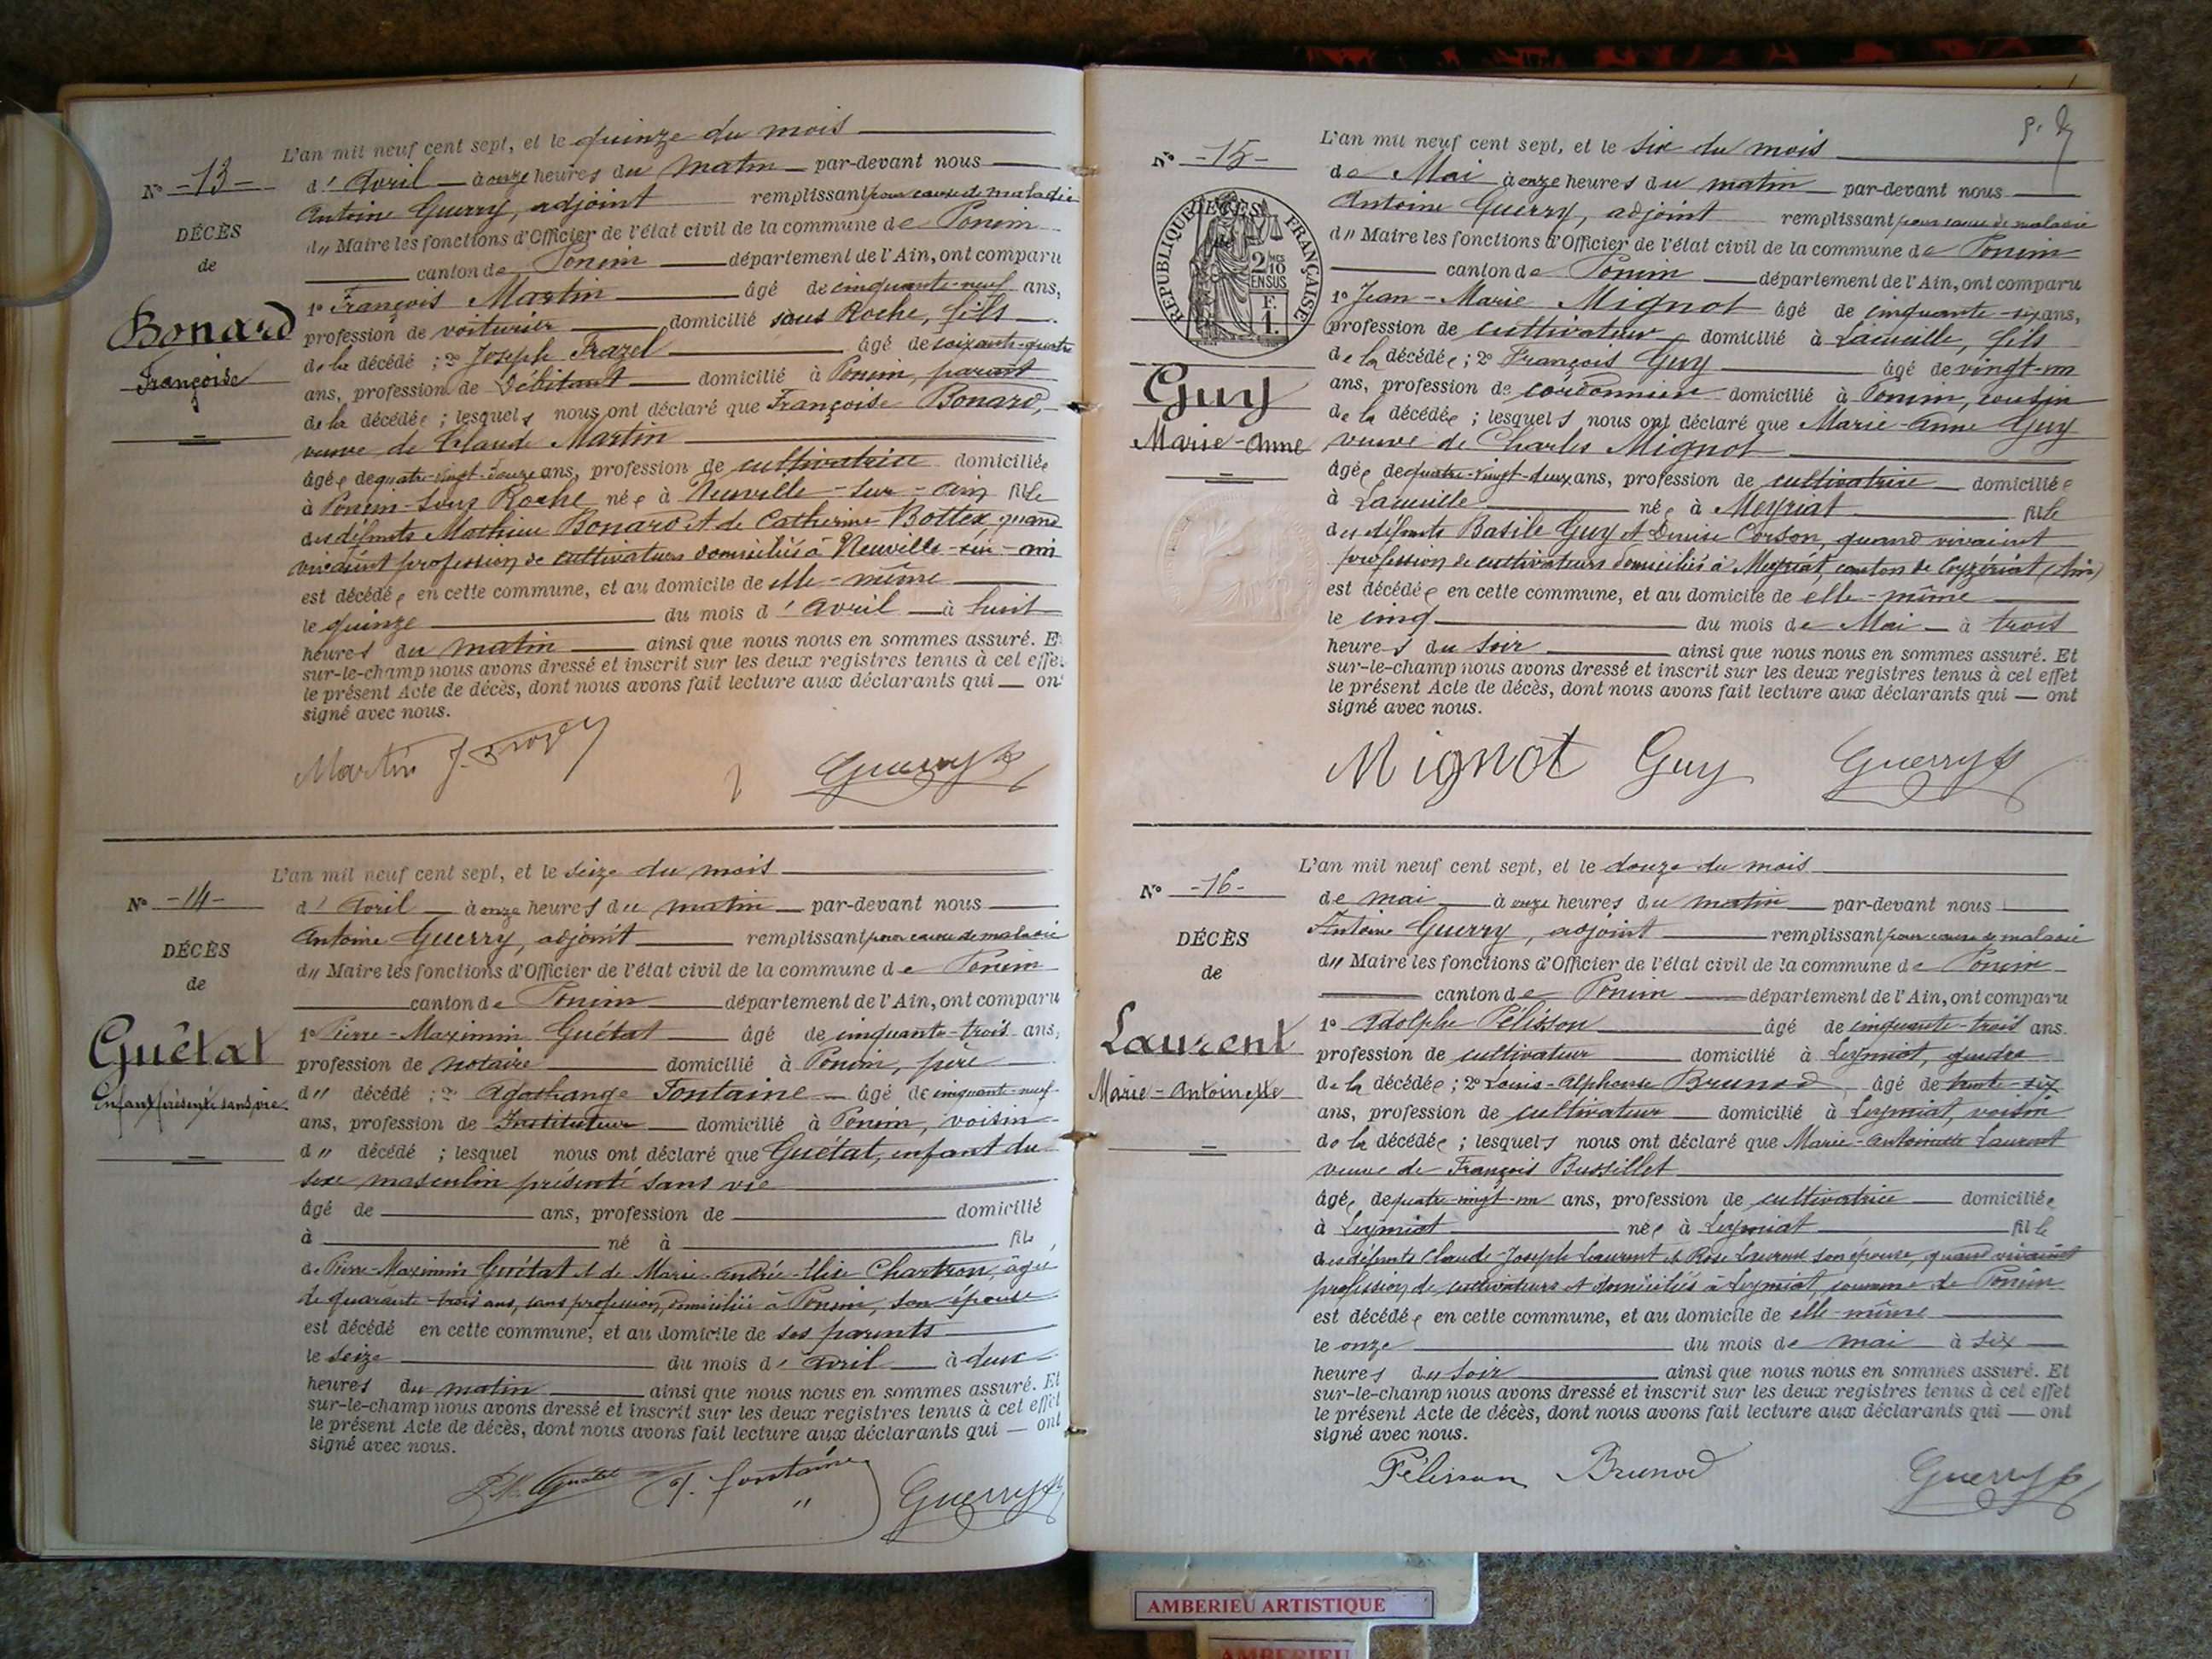 L'an mil neuf cent sept, et le quinze du mois
N° -13-
d'Avril à onze heures du matin par-devant nous
Antoine Guerry, adjoint remplissant pour cause de maladie
DÉCÈS
du Maire les fonctions d'Officier de l'état civil de la commune de Poncin
de
canton de Poncin département de l'Ain, ont comparu
1° François Martin âgé de cinquante-neuf ans,
Bonard
profession de voiturier domicilié sous Roche, fils
de la décédé ; 2° Joseph Frazel âgé de soixante-quatre
Françoise
ans, profession de Débitant domicilié à Poncin, parent
de la décédée ; lesquels nous ont déclaré que Françoise Bonard,
veuve de Claude Martin
âgée de quatre-vingt-douze ans, profession de cultivatrice domiciliée
à Poncin-sous Roche née à Neuville-sur-Ain fille
des défunts Mathieu Bonard et de Catherine Bottex, quand
vivaient profession de cultivateurs domiciliés à Neuville-sur-Ain
est décédée en cette commune, et au domicile de elle-même
le quinze du mois d'avril à huit
heures du matin ainsi que nous nous en sommes assuré. Et
sur-le-champ nous avons dressé et inscrit sur les deux registres tenus à cet effet
le présent Acte de décès, dont nous avons fait lecture aux déclarants qui ont
signé avec nous.
Martin Guerry
L'an mil neuf cent sept, et le seize du mois
N° -14-
d'Avril à onze heures du matin par-devant nous
Antoine Guerry, adjoint remplissant pour cause de maladie
DÉCÈS
du Maire les fonctions d'Officier de l'état civil de la commune de Poncin
de
canton de Poncin département de l'Ain, ont comparu
1° Pierre-Maximin Guétat âgé de cinquante-trois ans,
Guétat
profession de notaire domicilié à Poncin, père
Enfant présenté sans vie
du décédé ; 2° Agathange Fontaine âgé de cinquante-neuf
ans, profession de Instituteur domicilié à Poncin, voisin
du décédé ; lesquel nous ont déclaré que Guétat, enfant du
sexe masculin présenté sans vie
âgé de ans, profession de domicilié
à né à fils
de Pierre-Maximin Guétat et de Marie-Andrée-Elise Chartron, âgée
de quarante-trois ans, sans profession, domiciliée à Poncin, son épouse
est décédé en cette commune, et au domicile de ses parents
le seize du mois d'avril à deux
heures du matin ainsi que nous nous en sommes assuré. Et
sur-le-champ nous avons dressé et inscrit sur les deux registres tenus à cet effet
le présent Acte de décès, dont nous avons fait lecture aux déclarants qui — ont
signé avec nous.
Guétat fontaine Guerry
L'an mil neuf cent sept, et le six du mois
N° -15-
de Mai à onze heures du matin par-devant nous
Antoine Guerry, adjoint remplissant pour cause de maladie
du Maire les fonctions d'Officier de l'état civil de la commune de Poncin
canton de Poncin département de l'Ain, ont comparu
RÉPUBLIQUE FRANÇAISE
2 10
EN SUS
F.
1.
1° Jean-Marie Mignot âgé de cinquante-six ans,
profession de cultivateur domicilié à Lacueille, fils
de la décédée ; 2° François Guy âgé de vingt-un
Guy
ans, profession de cordonnier domicilié à Poncin, cousin
de la décédée ; lesquels nous ont déclaré que Marie-Anne Guy
Marie-Anne
veuve de Charles Mignot
âgée de quatre-vingt-deux ans, profession de cultivatrice domiciliée
à Lacueille née à Meyriat fille
des défunts Basile Guy et Denise Corson, quand vivaient
profession de cultivateurs domiciliés à Meyriat, canton de Ceyzériat (Ain)
est décédée en cette commune, et au domicile de elle-même
le cinq du mois de Mai à trois
heures du soir ainsi que nous nous en sommes assuré. Et
sur-le-champ nous avons dressé et inscrit sur les deux registres tenus à cet effet
le présent Acte de décès, dont nous avons fait lecture aux déclarants qui — ont
signé avec nous.
Mignot Guy Guerry
L'an mil neuf cent sept, et le douze du mois
N° -16-
de mai à onze heures du matin par-devant nous
Antoine Guerry, adjoint remplissant pour cause de maladie
DÉCÈS
du Maire les fonctions d'Officier de l'état civil de la commune de Poncin
de
canton de Poncin département de l'Ain, ont comparu
1° Adolphe Pélisson âgé de cinquante-trois ans.
Laurent
profession de cultivateur domicilié à Leymiat, gendre
Marie-Antoinette
de la décédée ; 2° Louis-Alphonse Brunod âgé de trente-six
ans, profession de cultivateur domicilié à Leymiat, voisin
de la décédée ; lesquels nous ont déclaré que Marie-Antoinette Laurent
veuve de François Bussillet
âgée de quatre-vingt-un ans, profession de cultivatrice domiciliée
à Leymiat née à Leymiat fille
des défunts Claude-Joseph Laurent et Rose Laurent son épouse, quand vivaient
profession de cultivateurs et domiciliés à Leymiat, commune de Poncin
est décédée en cette commune, et au domicile de elle-même
le onze du mois de mai à six
heures du soir ainsi que nous nous en sommes assuré. Et
sur-le-champ nous avons dressé et inscrit sur les deux registres tenus à cet effet
le présent Acte de décès, dont nous avons fait lecture aux déclarants qui — ont
signé avec nous.
Pélisson Brunod Guerry
AMBERIEU ARTISTIQUE
AMBERIEU